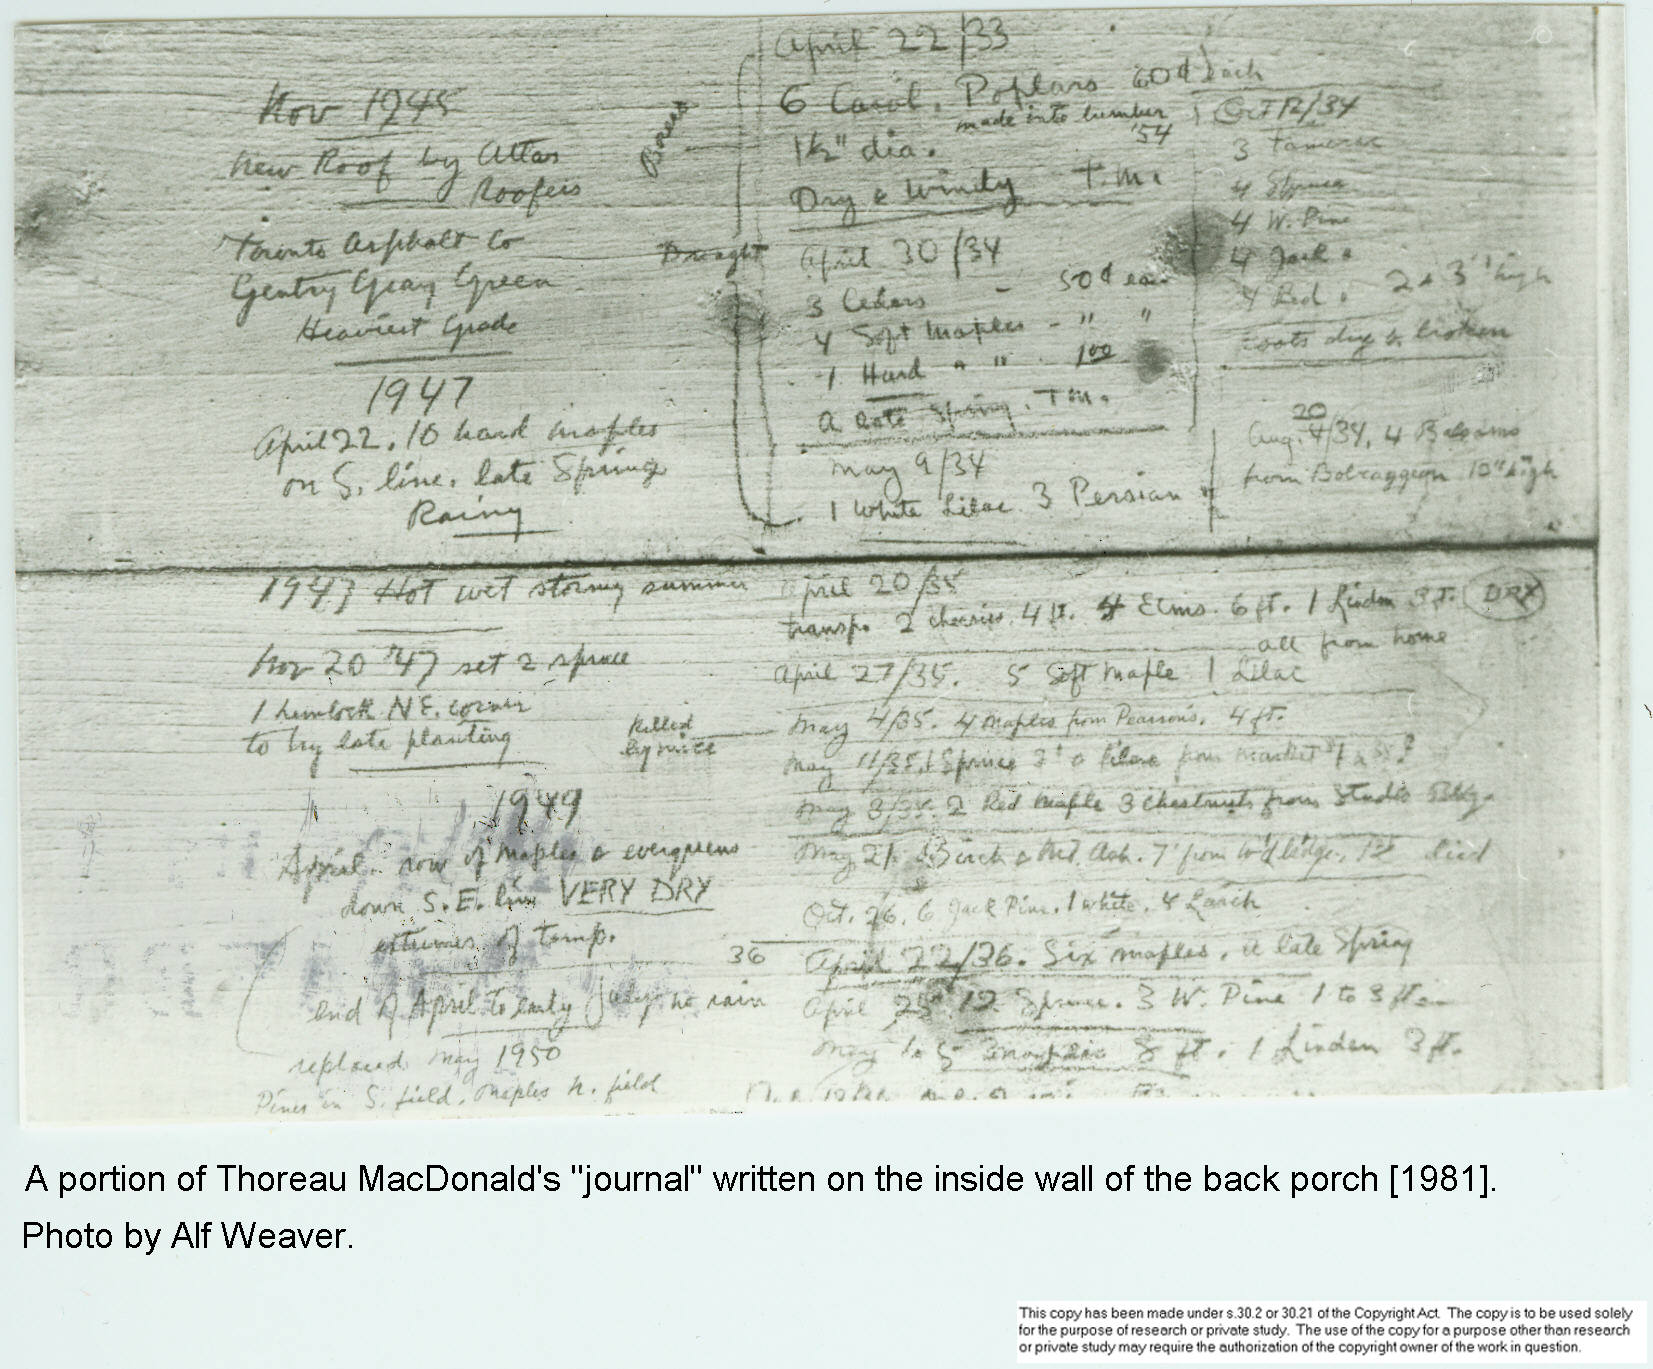 Nov 1945
New Roof by Attas
Roofers
Toronto Asphalt Co
Gentry Gray Green
Heaviest Grade
1947
April 22. 10 hard maples
on S. line. late Spring
Rainy
1947 Hot wet stormy summer
Nov 20 '47 set 2 spruce
1 hemlock NE. corner
to try late planting
1949
April. row of maples & evergreens
down S.E. line VERY DRY
extremes of temp.
end of April to early July no rain
replaced May 1950
Pines in S. field, Maples N. field
Borers
Drought
killed
by mice
36
April 22/33
6 Carol. Poplars 60¢ each
made into lumber
'54
1½" dia.
Dry & Windy T.M.
April 30/34
3 Cedars - 50¢ ea
4 Soft Maples - " "
1 Hard " " 1.00
A late Spring. T M.
May 9/34
1 White Lilac 3 Persian "
Oct 12/34
3 Tamarac
4 Spruce
4 W. Pine
4 Jack "
4 Red " 2 & 3' high
roots dry & broken
20
Aug. 4/34. 4 Balsams
from Bobcaygeon 10" high
April 20/35
transp. 2 cherries. 4 ft. 4 Elms. 6 ft. 1 Linden 3 ft. DRY
all from home
April 27/35. 5 Soft Maple 1 Lilac
May 4/35. 4 Maples from Pearson's. 4 ft.
May 11/35. 1 Spruce 3' from market
May 8/35. 2 Red Maple 3 chestnuts from Studio Bldg.
May 21. Birch & Mt. Ash. 7' from died
Oct. 26. 6 Jack Pine. 1 white. 4 Larch
April 22/36. Six maples. a late Spring
April 25 12 Spruce. 3 W. Pine 1 to 3 ft
May 5 8 ft. 1 Linden 3 ft.
A portion of Thoreau MacDonald's "journal" written on the inside wall of the back porch [1981].
Photo by Alf Weaver.
This copy has been made under s.30.2 or 30.21 of the Copyright Act. The copy is to be used solely
for the purpose of research or private study. The use of the copy for a purpose other than research
or private study may require the authorization of the copyright owner of the work in question.